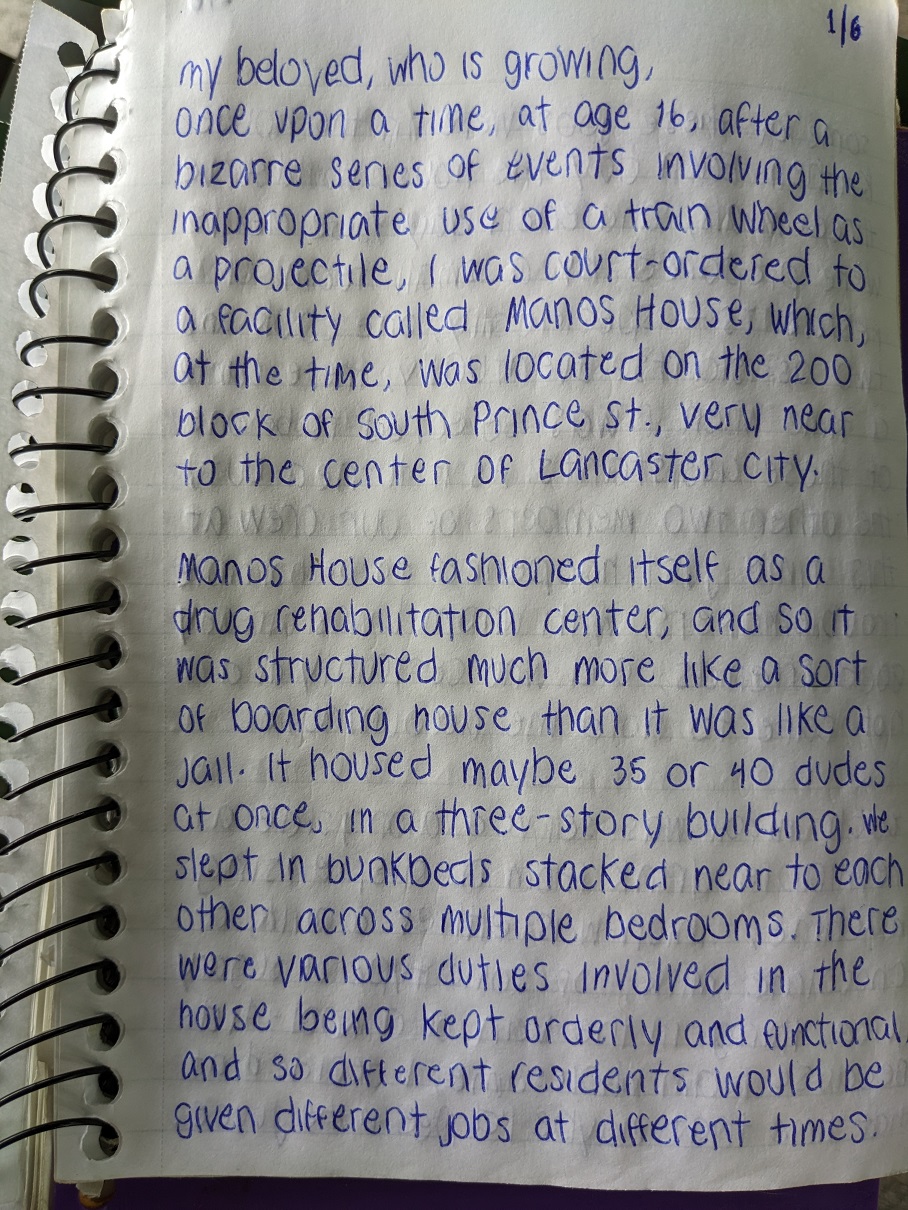 1/6
my beloved, who is growing,
once upon a time, at age 16, after a
bizarre series of events involving the
inappropriate use of a train wheel as
a projectile, I was court-ordered to
a facility called Manos House, which,
at the time, was located on the 200
block of South Prince St., very near
to the center of Lancaster City.
Manos House fashioned itself as a
drug rehabilitation center, and so it
was structured much more like a sort
of boarding house than it was like a
jail. It housed maybe 35 or 40 dudes
at once, in a three-story building. We
slept in bunkbeds stacked near to each
other across multiple bedrooms. There
were various duties involved in the
house being kept orderly and functional,
and so different residents would be
given different jobs at different times.